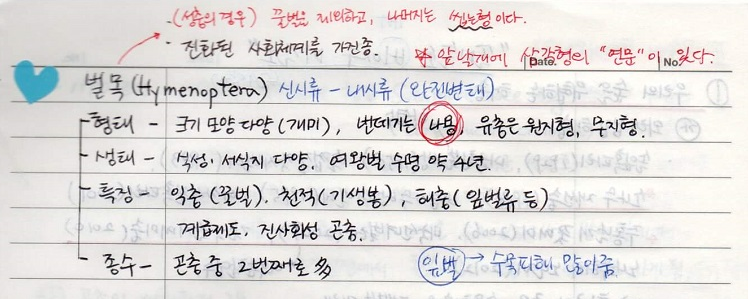 · (성충의 경우) 꿀벌을 제외하고, 나머지는 씹는형이다.
· 진화된 사회체계를 가진종. 앞날개에 삼각형의 "연문"이 있다.
Date. No.
벌목 (Hymenoptera) 신시류 - 내시류 (완전변태)
형태 - 크기 모양 다양 (개미), 번데기는 나용, 유충은 원지형, 무지형.
생태 - 식성·서식지 다양. 여왕벌 수명 약 4년.
특징 - 익충 (꿀벌), 천적 (기생봉), 해충 (잎벌류 등)
계급제도, 진사회성 곤충.
종수 - 곤충 중 2번째로 多 잎벌 → 수목피해 많이줌.